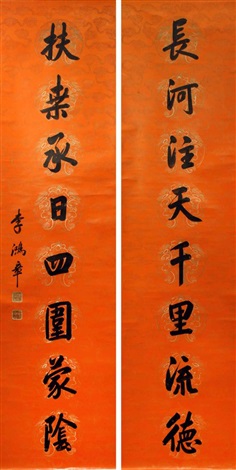 長河注天千里流德
扶桒承日四圍蒙陰
李鴻章